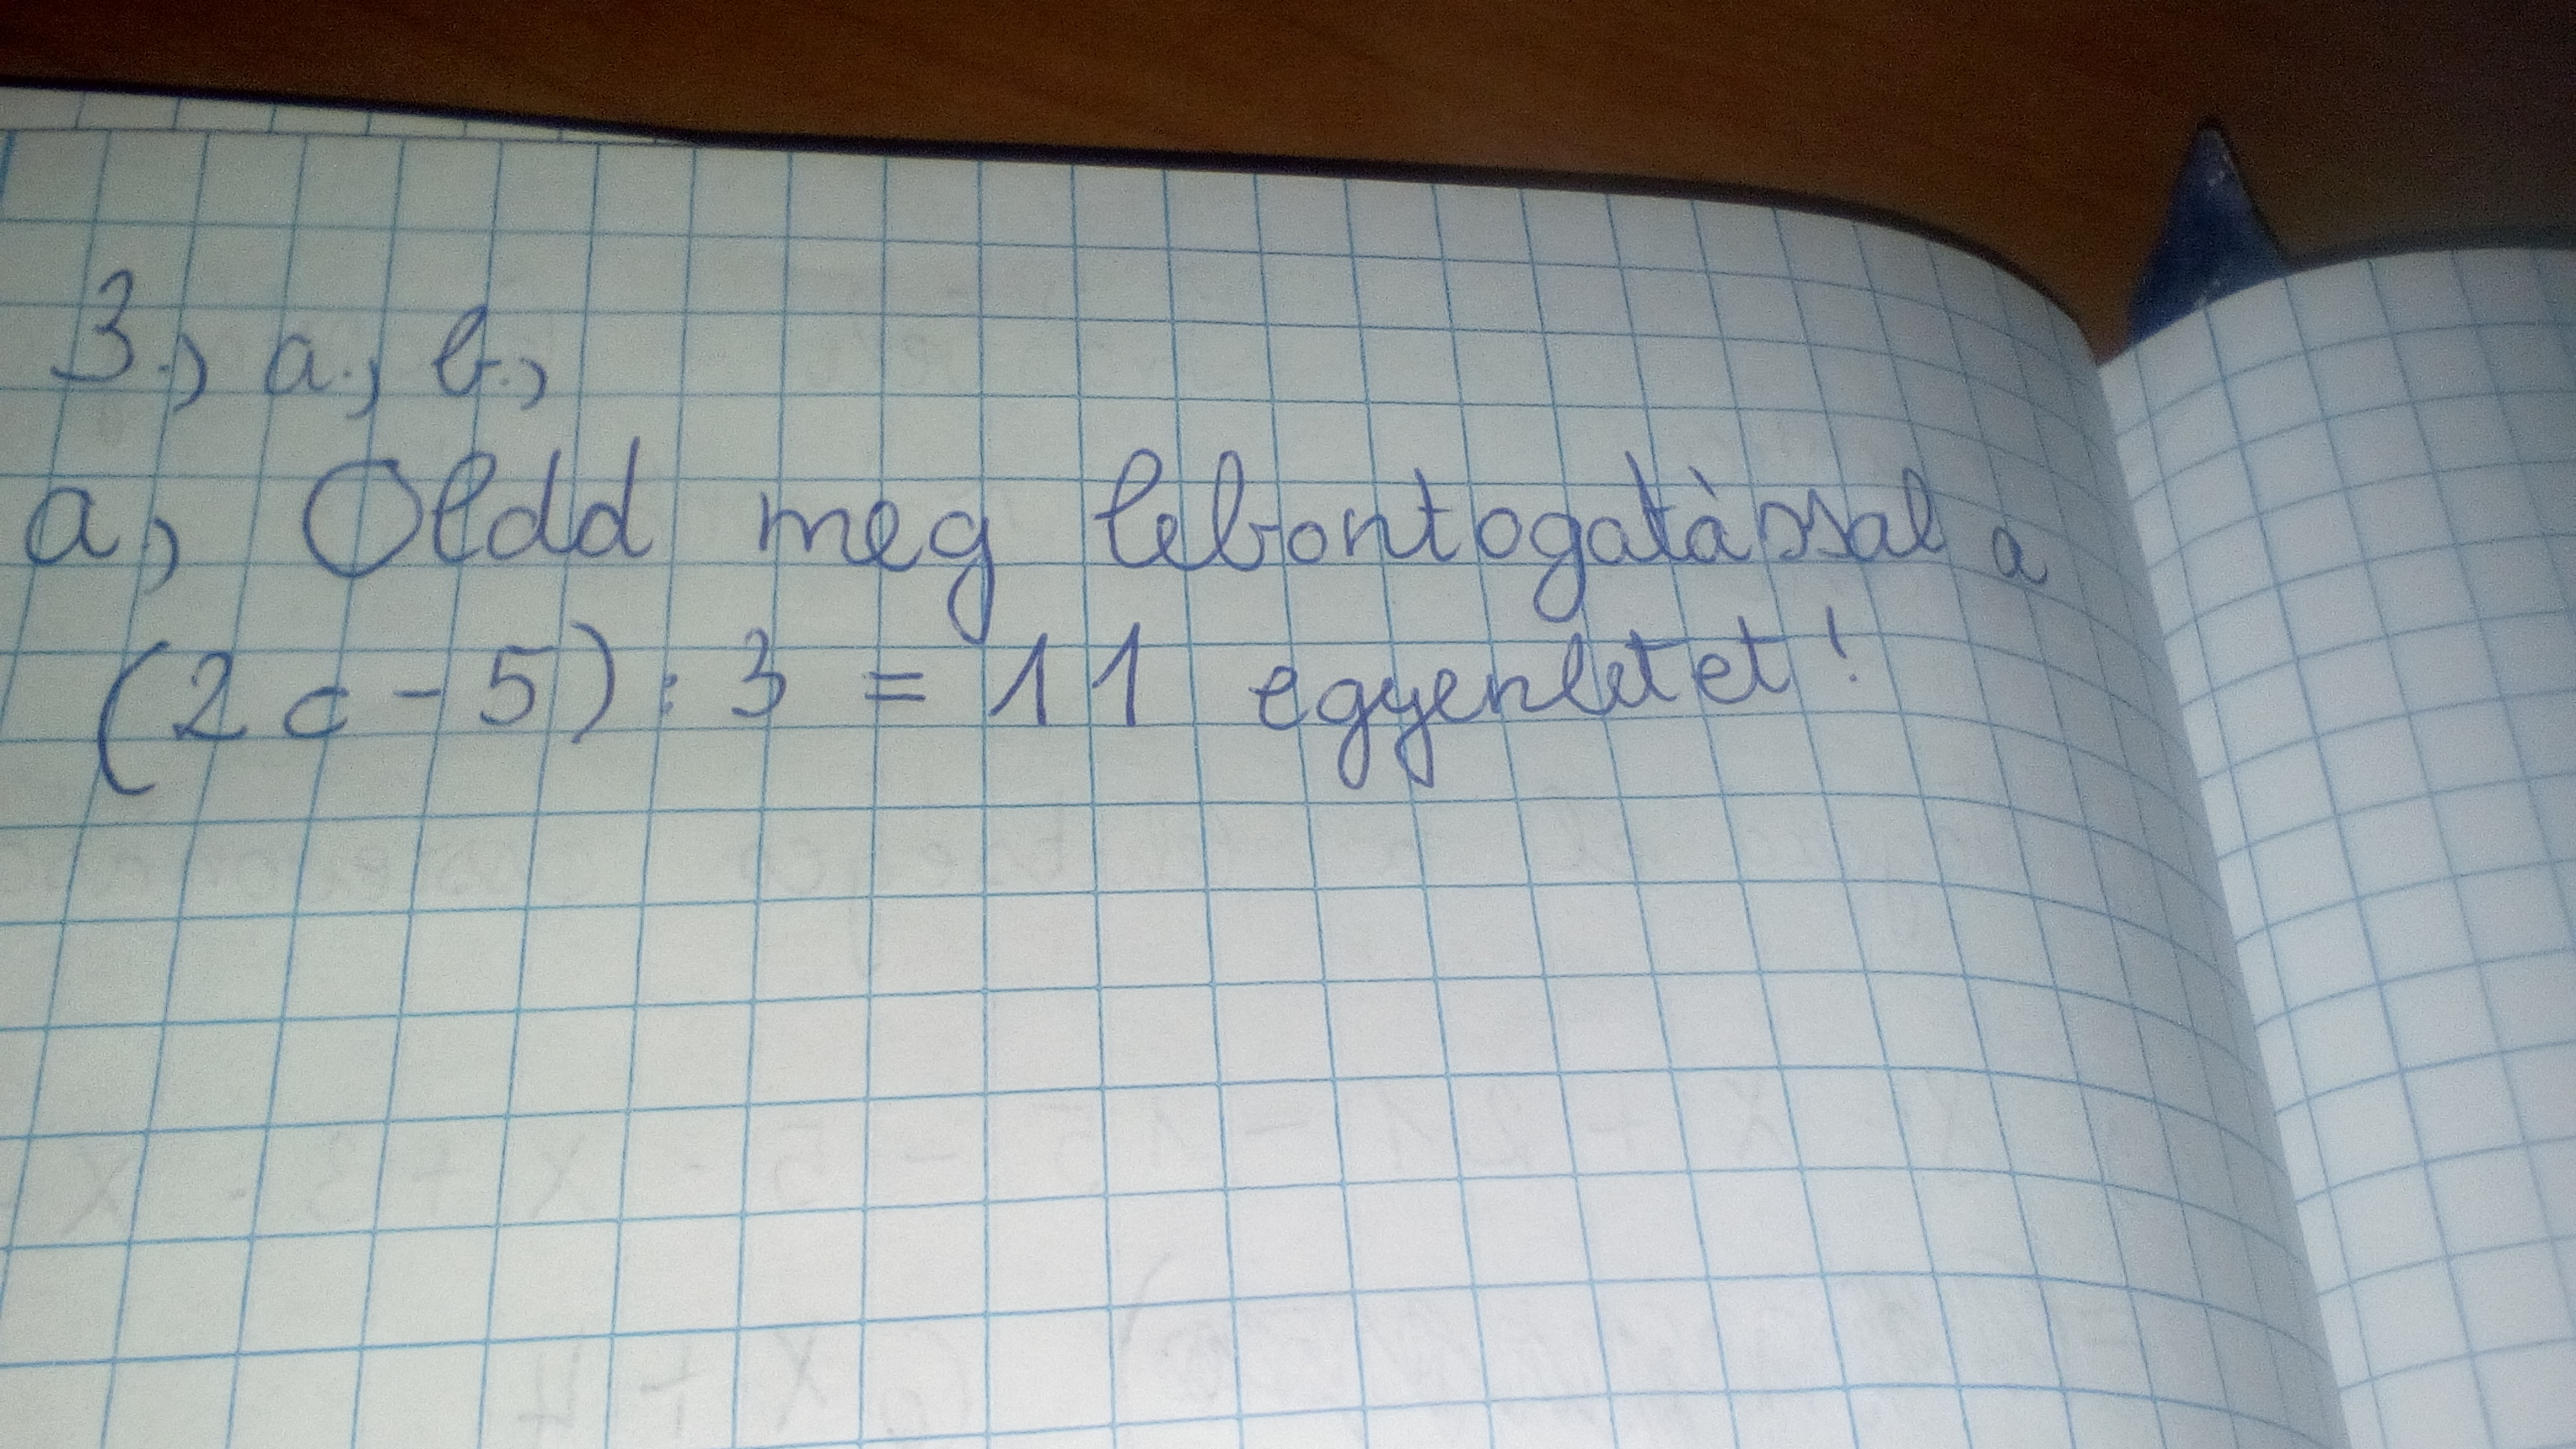 3., a., b.,
a., Oldd meg lebontogatással a
(2c - 5) : 3 = 11 egyenletet!